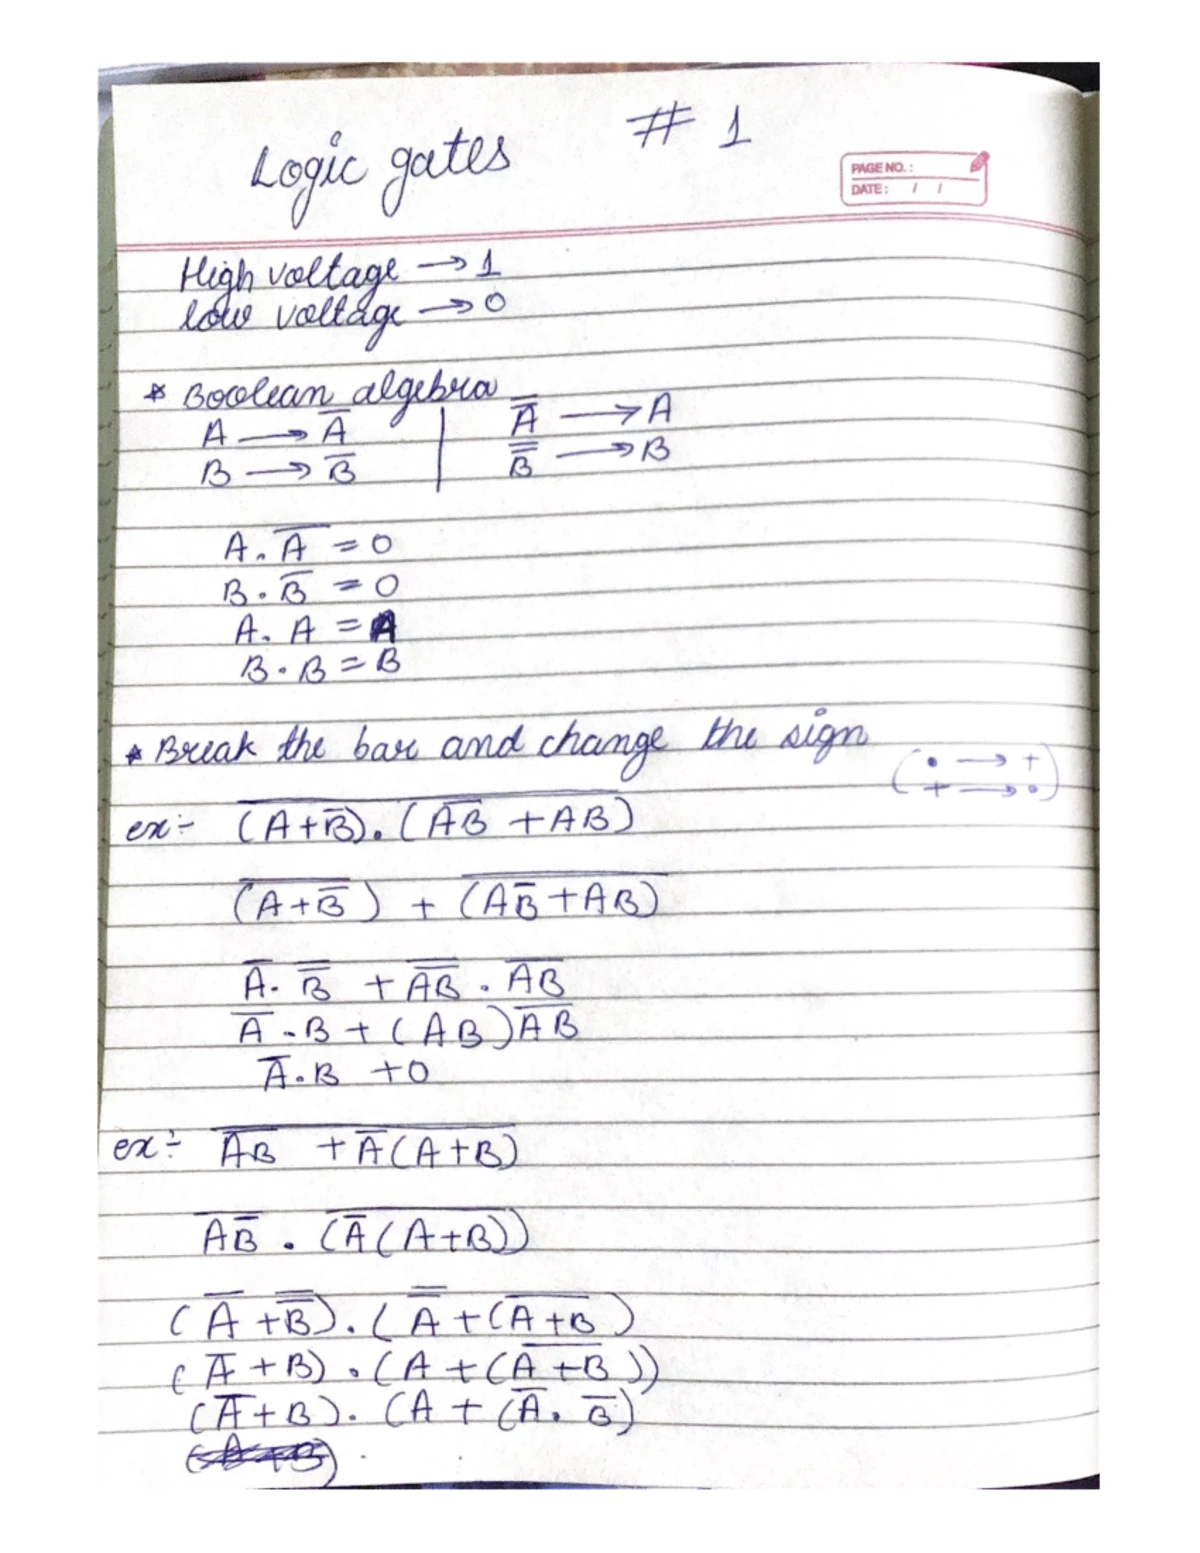 Logic gates # 1
PAGE NO.:
DATE: / /
High voltage → 1
low voltage → 0
* Boolean algebra
A → A̅ | A̅ → A
B → B̅ | B̿ → B
A . A̅ = 0
B . B̅ = 0
A . A = A
B . B = B
* Break the bar and change the sign
( • → +
+ → • )
ex:- \overline{(A+B̅).(AB̅ + AB)}
\overline{(A+B̅)} + \overline{(AB̅+AB)}
A̅ . B̿ + \overline{AB̅} . \overline{AB}
A̅ . B + (AB)\overline{AB}
A̅ . B + 0
ex:- \overline{AB̅ + A̅(A+B)}
\overline{AB̅} . \overline{(A̅(A+B))}
(A̅ + B̿) . (A̿ + (\overline{A+B})
(A̅ + B) . (A + (\overline{A+B}))
(A̅ + B) . (A + (A̅ . B̅)